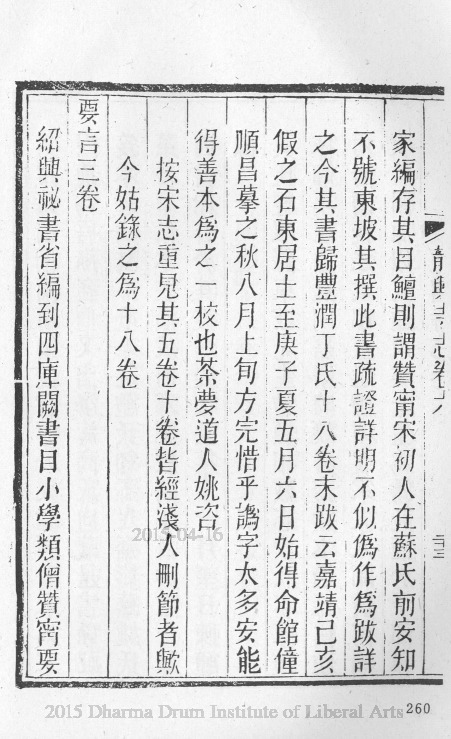 龍興寺志卷八
二十三
家編存其目鱣則謂贊甯宋初人在蘇氏前安知
不號東坡其撰此書疏證詳明不似僞作爲跋詳
之今其書歸豐潤丁氏十八卷末跋云嘉靖己亥
假之石東居士至庚子夏五月六日始得命館僮
順昌摹之秋八月上旬方完惜乎譌字太多安能
得善本爲之一校也茶夢道人姚咨
按宋志重見其五卷十卷皆經淺人刪節者歟
今姑錄之爲十八卷
要言三卷
紹興祕書省編到四庫闕書目小學類僧贊甯要
2015-04-16
2015 Dharma Drum Institute of Liberal Arts
260